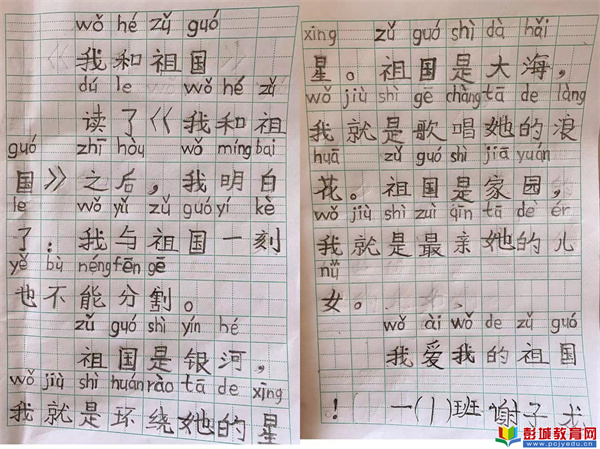 wǒ hé zǔ guó
我和祖国
dú le wǒ hé zǔ
读了《我和祖
guó zhī hòu wǒ míng bai
国》之后，我明白
le wǒ yǔ zǔ guó yí kè
了：我与祖国一刻
yě bù néng fēn gē
也不能分割。
zǔ guó shì yín hé
祖国是银河，
wǒ jiù shì huán rào tā de xīng
我就是环绕她的星
xīng zǔ guó shì dà hǎi
星。祖国是大海，
wǒ jiù shì gē chàng tā de làng
我就是歌唱她的浪
huā zǔ guó shì jiā yuán
花。祖国是家园，
wǒ jiù shì zuì qīn tā de ér
我就是最亲她的儿
nǚ
女。
wǒ ài wǒ de zǔ guó
我爱我的祖国
！ 一(1)班 谢子尤
彭城教育网
www.pcjyedu.cn